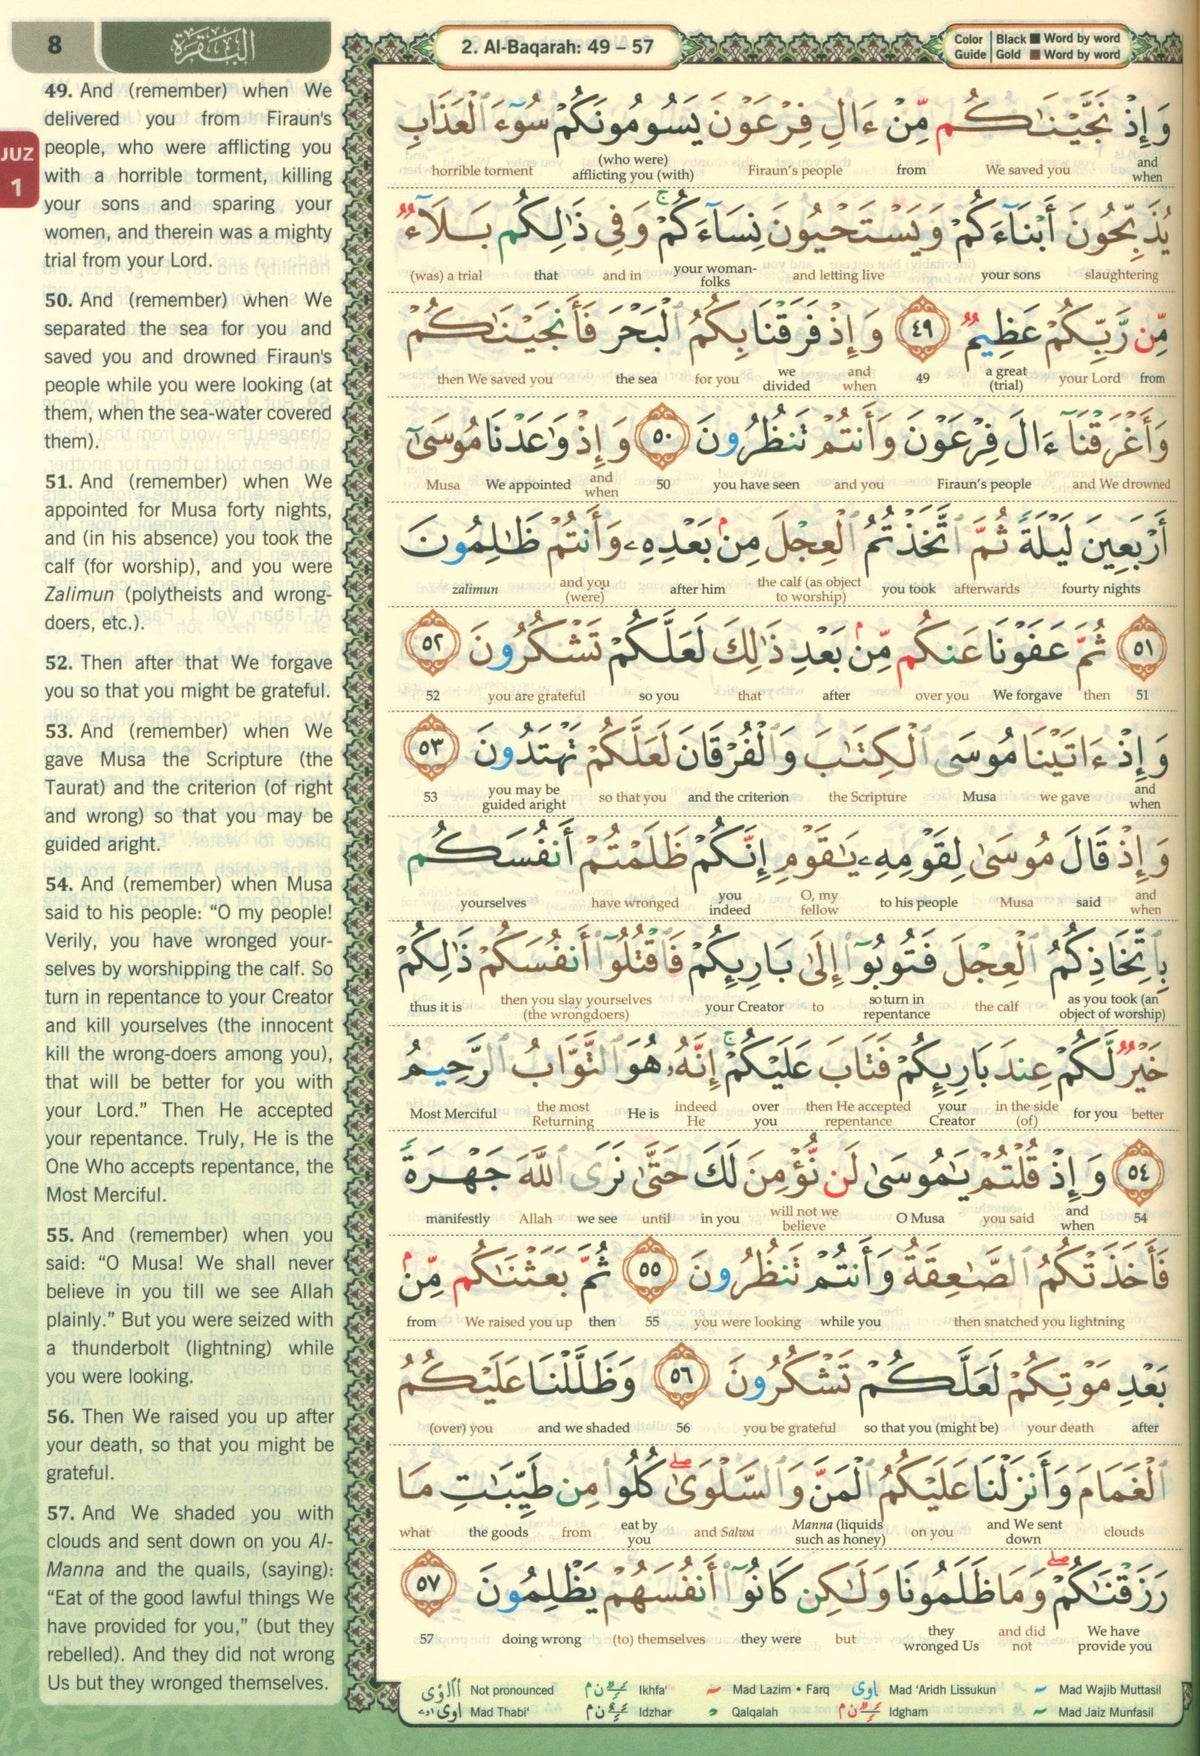 8
البقرة
JUZ
1
2. Al-Baqarah: 49 – 57
Color Guide
Black Word by word
Gold Word by word
49. And (remember) when We
delivered you from Firaun's
people, who were afflicting you
with a horrible torment, killing
your sons and sparing your
women, and therein was a mighty
trial from your Lord.
50. And (remember) when We
separated the sea for you and
saved you and drowned Firaun's
people while you were looking (at
them, when the sea-water covered
them).
51. And (remember) when We
appointed for Musa forty nights,
and (in his absence) you took the
calf (for worship), and you were
Zalimun (polytheists and wrong-
doers, etc.).
52. Then after that We forgave
you so that you might be grateful.
53. And (remember) when We
gave Musa the Scripture (the
Taurat) and the criterion (of right
and wrong) so that you may be
guided aright.
54. And (remember) when Musa
said to his people: “O my people!
Verily, you have wronged your-
selves by worshipping the calf. So
turn in repentance to your Creator
and kill yourselves (the innocent
kill the wrong-doers among you),
that will be better for you with
your Lord.” Then He accepted
your repentance. Truly, He is the
One Who accepts repentance, the
Most Merciful.
55. And (remember) when you
said: “O Musa! We shall never
believe in you till we see Allah
plainly.” But you were seized with
a thunderbolt (lightning) while
you were looking.
56. Then We raised you up after
your death, so that you might be
grateful.
57. And We shaded you with
clouds and sent down on you Al-
Manna and the quails, (saying):
“Eat of the good lawful things We
have provided for you,” (but they
rebelled). And they did not wrong
Us but they wronged themselves.
وَإِذْ نَجَّيْنَٰكُم مِّنْ ءَالِ فِرْعَوْنَ يَسُومُونَكُمْ سُوٓءَ ٱلْعَذَابِ
and when We saved you from Firaun's people (who were) afflicting you (with) horrible torment
يُذَبِّحُونَ أَبْنَآءَكُمْ وَيَسْتَحْيُونَ نِسَآءَكُمْ ۚ وَفِى ذَٰلِكُم بَلَآءٌ
slaughtering your sons and letting live your woman-folks and in that (was) a trial
مِّن رَّبِّكُمْ عَظِيمٌ ٤٩ وَإِذْ فَرَقْنَا بِكُمُ ٱلْبَحْرَ فَأَنجَيْنَٰكُمْ
from your Lord a great (trial) 49 and when we divided for you the sea then We saved you
وَأَغْرَقْنَآ ءَالَ فِرْعَوْنَ وَأَنتُمْ تَنظُرُونَ ٥٠ وَإِذْ وَٰعَدْنَا مُوسَىٰٓ
and We drowned Firaun's people and you you have seen 50 and when We appointed Musa
أَرْبَعِينَ لَيْلَةً ثُمَّ ٱتَّخَذْتُمُ ٱلْعِجْلَ مِنۢ بَعْدِهِۦ وَأَنتُمْ ظَٰلِمُونَ
fourty nights afterwards you took the calf (as object to worship) after him and you (were) zalimun
٥١ ثُمَّ عَفَوْنَا عَنكُم مِّنۢ بَعْدِ ذَٰلِكَ لَعَلَّكُمْ تَشْكُرُونَ ٥٢
51 then We forgave over you after that so you you are grateful 52
وَإِذْ ءَاتَيْنَا مُوسَى ٱلْكِتَٰبَ وَٱلْفُرْقَانَ لَعَلَّكُمْ تَهْتَدُونَ ٥٣
and when we gave Musa the Scripture and the criterion so that you you may be guided aright 53
وَإِذْ قَالَ مُوسَىٰ لِقَوْمِهِۦ يَٰقَوْمِ إِنَّكُمْ ظَلَمْتُمْ أَنفُسَكُم
and when said Musa to his people O, my fellow you indeed have wronged yourselves
بِٱتِّخَاذِكُمُ ٱلْعِجْلَ فَتُوبُوٓا۟ إِلَىٰ بَارِئِكُمْ فَٱقْتُلُوٓا۟ أَنفُسَكُمْ ذَٰلِكُمْ
as you took (an object of worship) the calf so turn in repentance to your Creator then you slay yourselves (the wrongdoers) thus it is
خَيْرٌ لَّكُمْ عِندَ بَارِئِكُمْ فَتَابَ عَلَيْكُمْ ۚ إِنَّهُۥ هُوَ ٱلتَّوَّابُ ٱلرَّحِيمُ
better for you in the side (of) your Creator then He accepted repentance over you indeed He He is the most Returning Most Merciful
٥٤ وَإِذْ قُلْتُمْ يَٰمُوسَىٰ لَن نُّؤْمِنَ لَكَ حَتَّىٰ نَرَى ٱللَّهَ جَهْرَةً
54 and when you said O Musa will not we believe in you until we see Allah manifestly
فَأَخَذَتْكُمُ ٱلصَّٰعِقَةُ وَأَنتُمْ تَنظُرُونَ ٥٥ ثُمَّ بَعَثْنَٰكُم مِّنۢ
then snatched you lightning while you you were looking 55 then We raised you up from
بَعْدِ مَوْتِكُمْ لَعَلَّكُمْ تَشْكُرُونَ ٥٦ وَظَلَّلْنَا عَلَيْكُمُ
after your death so that you (might be) you be grateful 56 and we shaded (over) you
ٱلْغَمَامَ وَأَنزَلْنَا عَلَيْكُمُ ٱلْمَنَّ وَٱلسَّلْوَىٰ ۖ كُلُوا۟ مِن طَيِّبَٰتِ مَا
clouds and We sent down on you Manna (liquids such as honey) and Salwa eat by you from the goods what
رَزَقْنَٰكُمْ ۖ وَمَا ظَلَمُونَا وَلَٰكِن كَانُوٓا۟ أَنفُسَهُمْ يَظْلِمُونَ ٥٧
We have provide you and did not they wronged Us but they were (to) themselves doing wrong 57
Not pronounced Ikhfa' Mad Lazim • Farq Mad 'Aridh Lissukun Mad Wajib Muttasil
Mad Thabi' Idzhar Qalqalah Idgham Mad Jaiz Munfasil